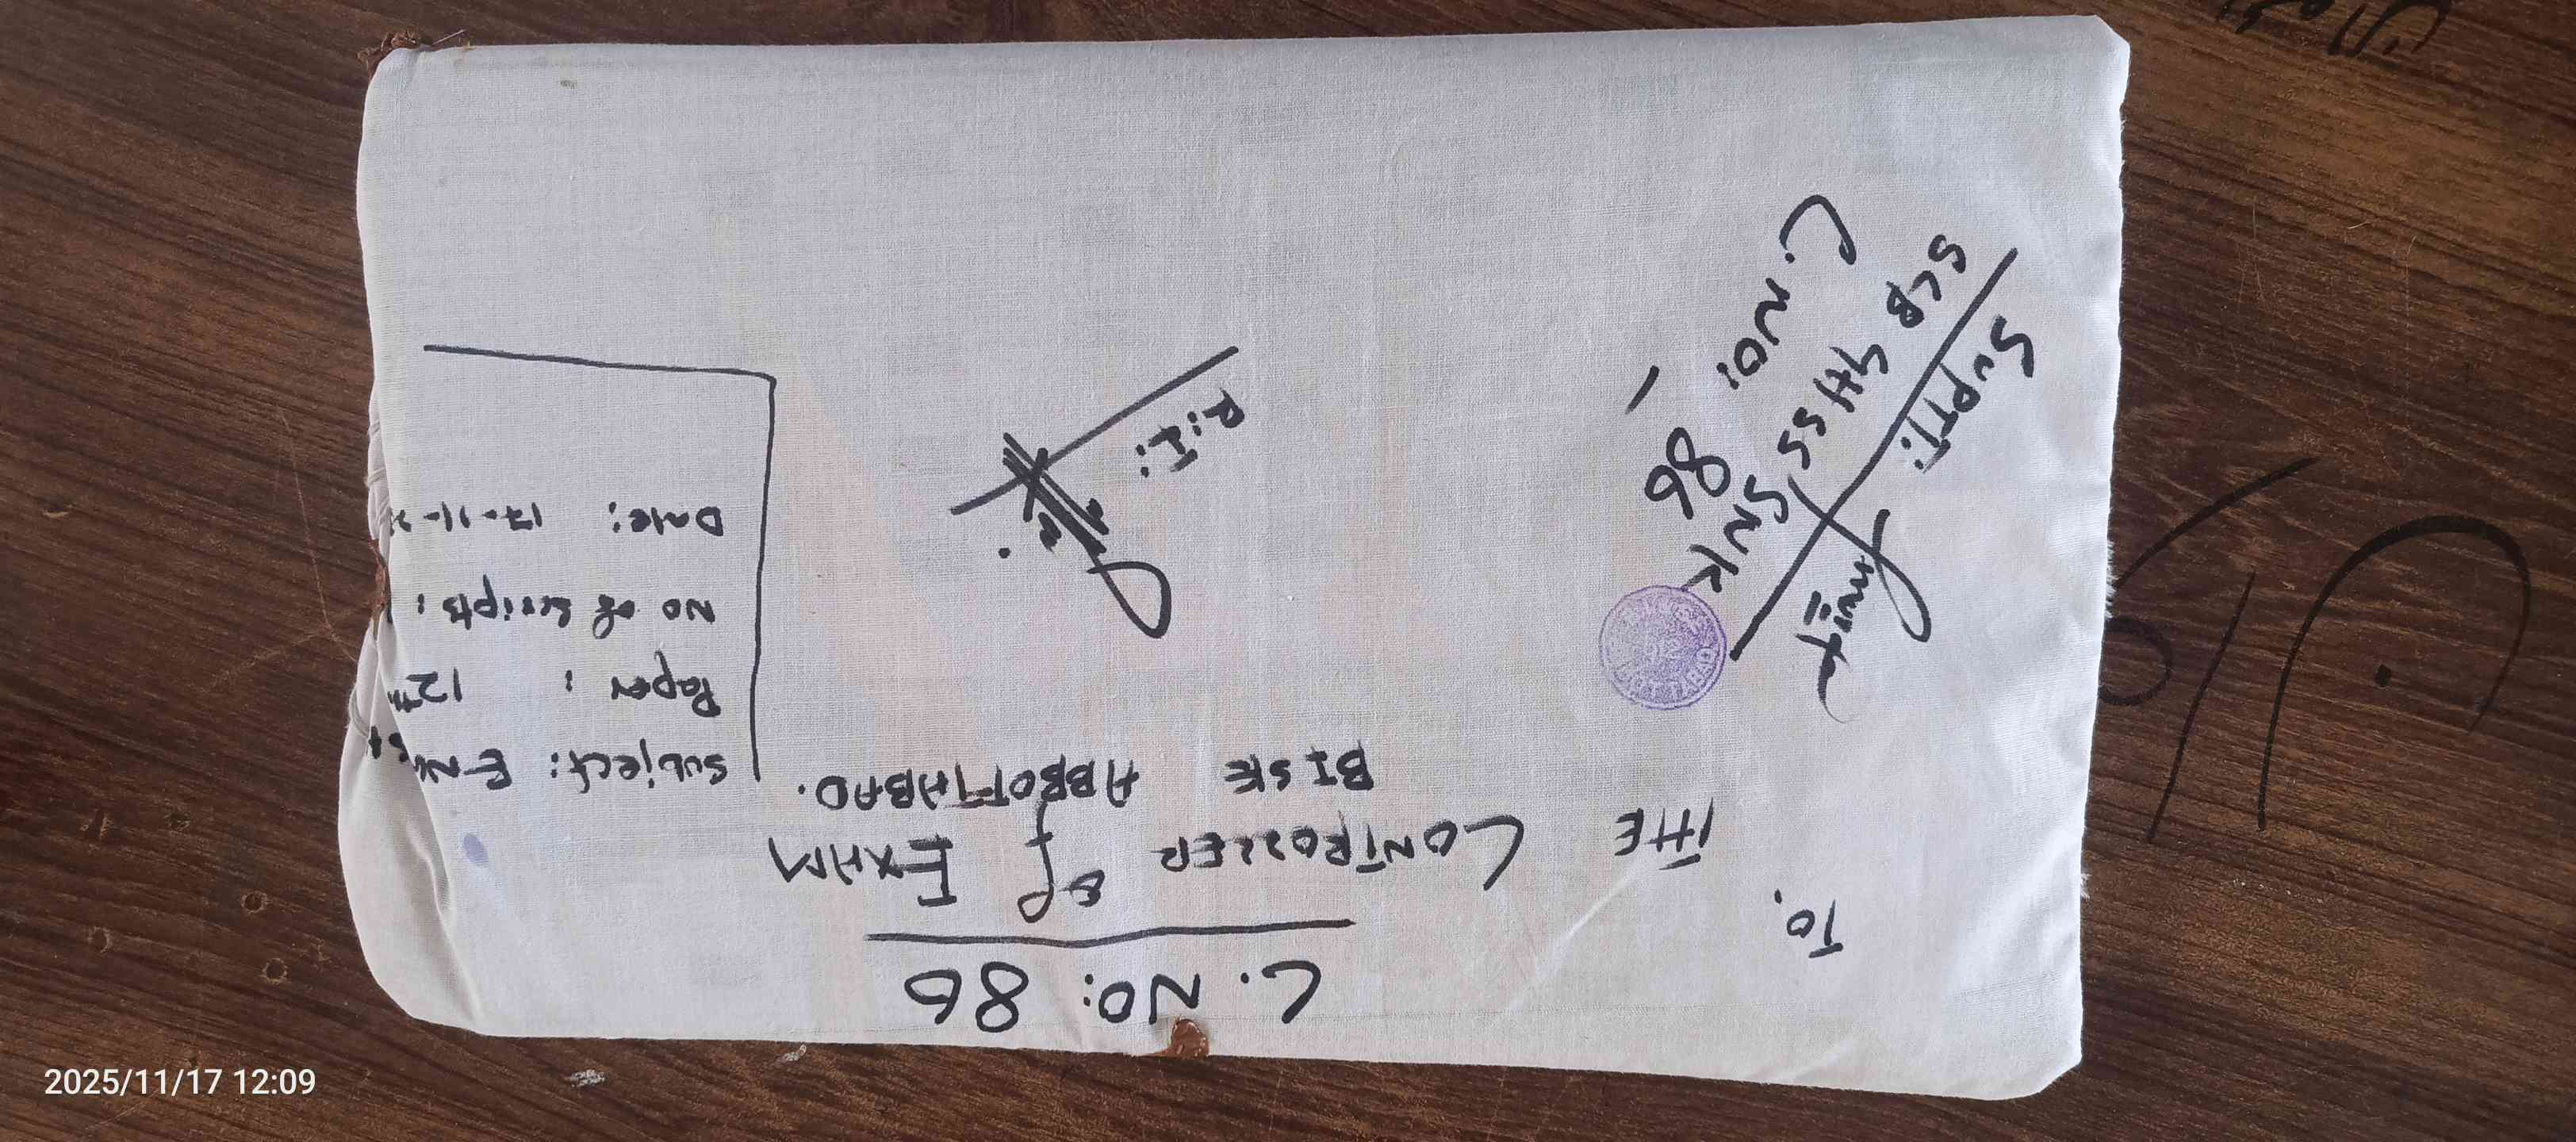 C. NO: 86
To,
THE CONTROLLER of EXAM
BISE ABBOTTABAD.
Subject: E-
Paper : 12th
No of scripts :
Date: 17-11-2
R.I:
SUPT:
SCB GHSS SNK
C. NO: 86
2025/11/17 12:09